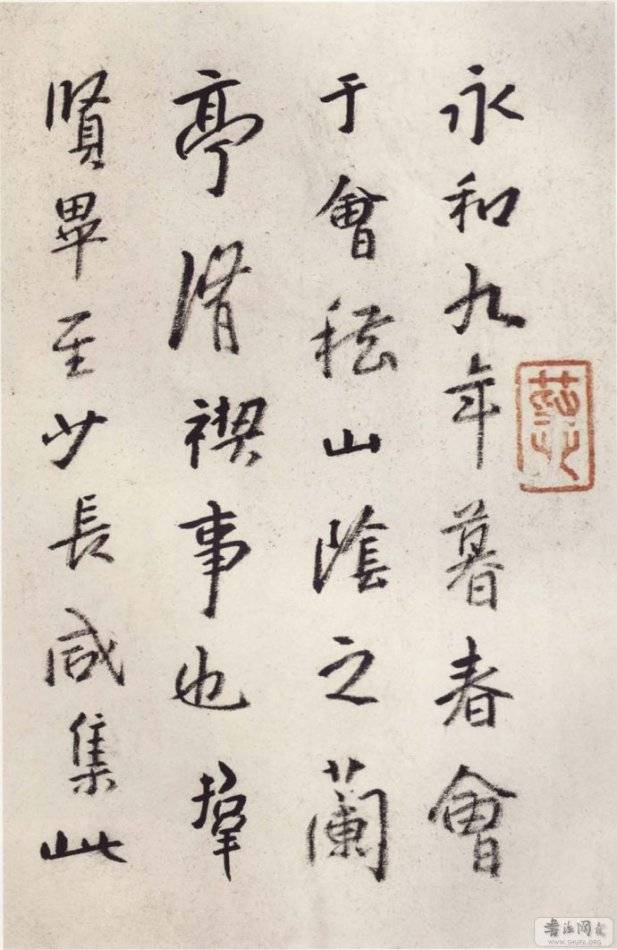 永和九年暮春會
于會稽山陰之蘭
亭脩禊事也羣
賢畢至少長咸集此
WWW.SHUFA.ORG